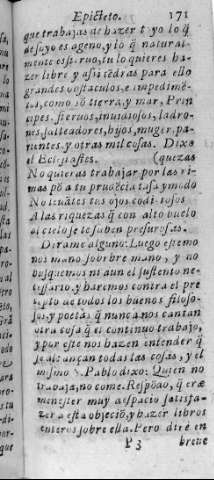 Epicteto. 171
que trabajas de hazer tuyo lo q̃
de suyo es ageno, y lo q̃ natural-
mente es sieruo, tu lo quieres ha-
zer libre y assi tẽdras para ello
grandes obstaculos, e impedimẽ-
tos, como sõ tierra, y mar, Prin-
cipes, sieruos, inuidiosos, ladro-
nes, salteadores, hijos, muger, pa-
rientes, y otras mil cosas. Dixo
el Eclesiastes. (quezas
No quieras trabajar por las ri-
mas põ a tu prudẽcia tasa y modo
No leuãtes tus ojos codiciosos
A las riquezas q̃ con alto buelo
al cielo se te suben presurosas.
Dirame alguno: Luego estemo
nos mano sobre mano, y no
busquemos ni aun el sustento ne-
cessario, y haremos contra el pre
cepto de todos los buenos filoso-
fos, y poetas, q̃ nunca nos cantan
otra cosa q̃ el continuo trabajo,
y por este nos hazen entender q̃
se alcançan todas las cosas, y el
mismo S. Pablo dixo: Quien no
trabaja, no come. Respõdo, q̃ era
menester muy de espacio satisfa-
zer a esta objeciõ, y hazer libros
enteros sobre ella. Pero dire en
P 3 breue